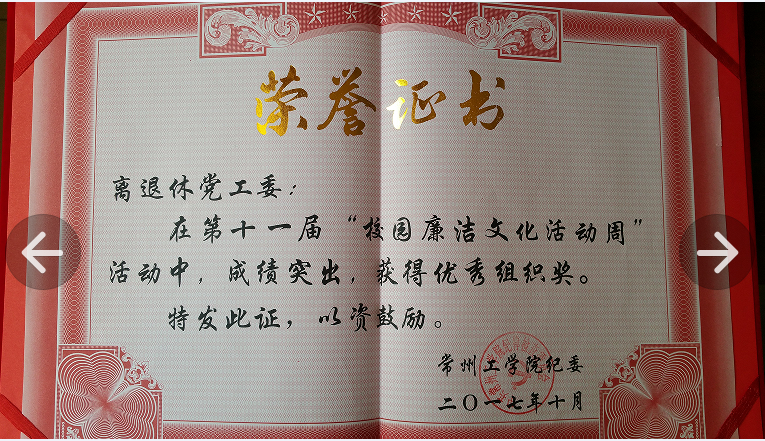 荣誉证书
离退休党工委：
在第十一届“校园廉洁文化活动周”
活动中，成绩突出，获得优秀组织奖。
特发此证，以资鼓励。
常州工学院纪委
二〇一七年十月